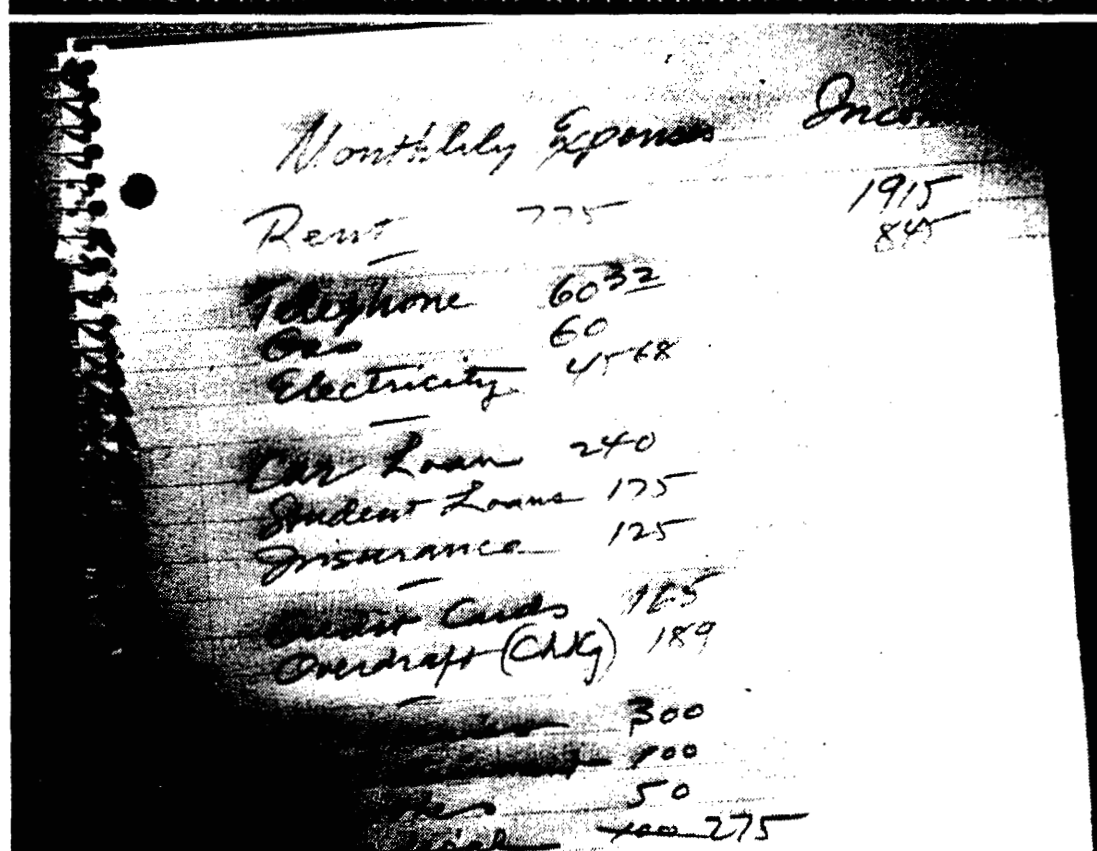 Monthlily Expenses
Rent 775 1915
845
Telephone 60 32
Gas 60
Electricity 45 68
Car Loan 240
Student Loans 175
Insurance 125
Credit Cards 165
Overdraft (Chkg) 189
300
100
50
100 275